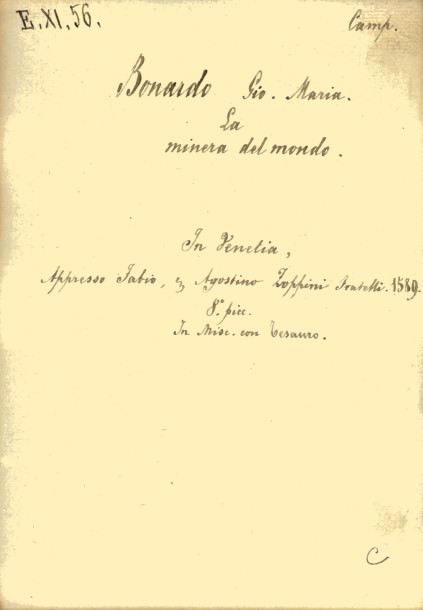 E. XI. 56.
Camp.
Bonardo Gio. Maria.
La
minera del mondo.
In Venetia,
Appresso Fabio, & Agostino Zoppini Fratelli. 1589.
8.° picc.
In Misc. con Tesauro.
C